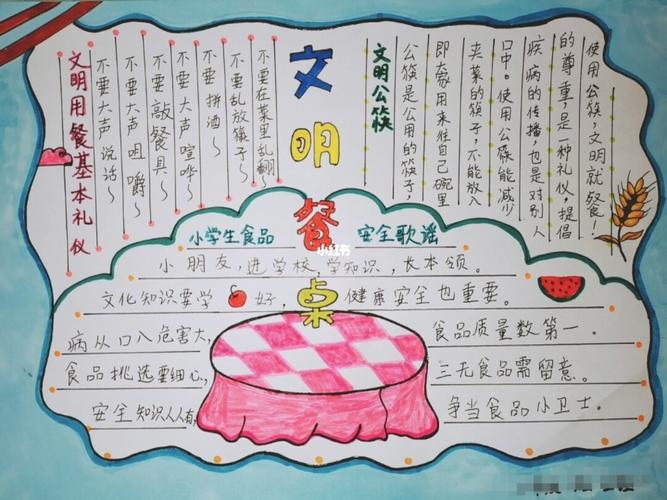 文明餐桌
文明用餐基本礼仪
不要大声说话~
不要大声咀嚼~
不要敲餐具~
不要大声喧哗~
不要拼酒~
不要乱放筷子~
不要在菜里乱翻~
文明公筷
公筷是公用的筷子,
即大家用来往自己碗里
夹菜的筷子,不能放入
口中。使用公筷能减少
疾病的传播,也是对别人
的尊重,是一种礼仪,提倡
使用公筷,文明就餐!
小红书
小学生食品 安全歌谣
小朋友,进学校,学知识,长本领。
文化知识要学好,健康安全也重要。
病从口入危害大, 食品质量数第一。
食品挑选要细心, 三无食品需留意。
安全知识人人有, 争当食品小卫士。